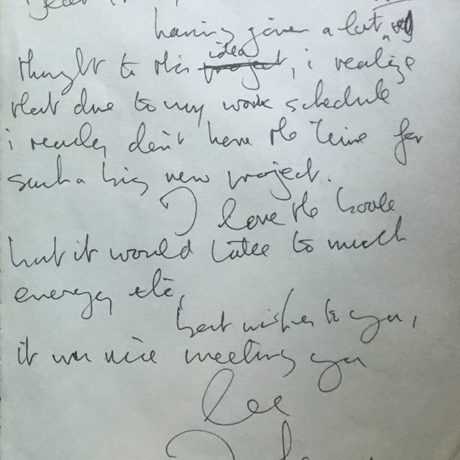 Dear
having given a lot of
thought to this idea project, i realize
that due to my work schedule
i really don't have the time for
such a big new project.
I love the house
but it would take to much
energy etc.
best wishes to you,
it was nice meeting you
Lee